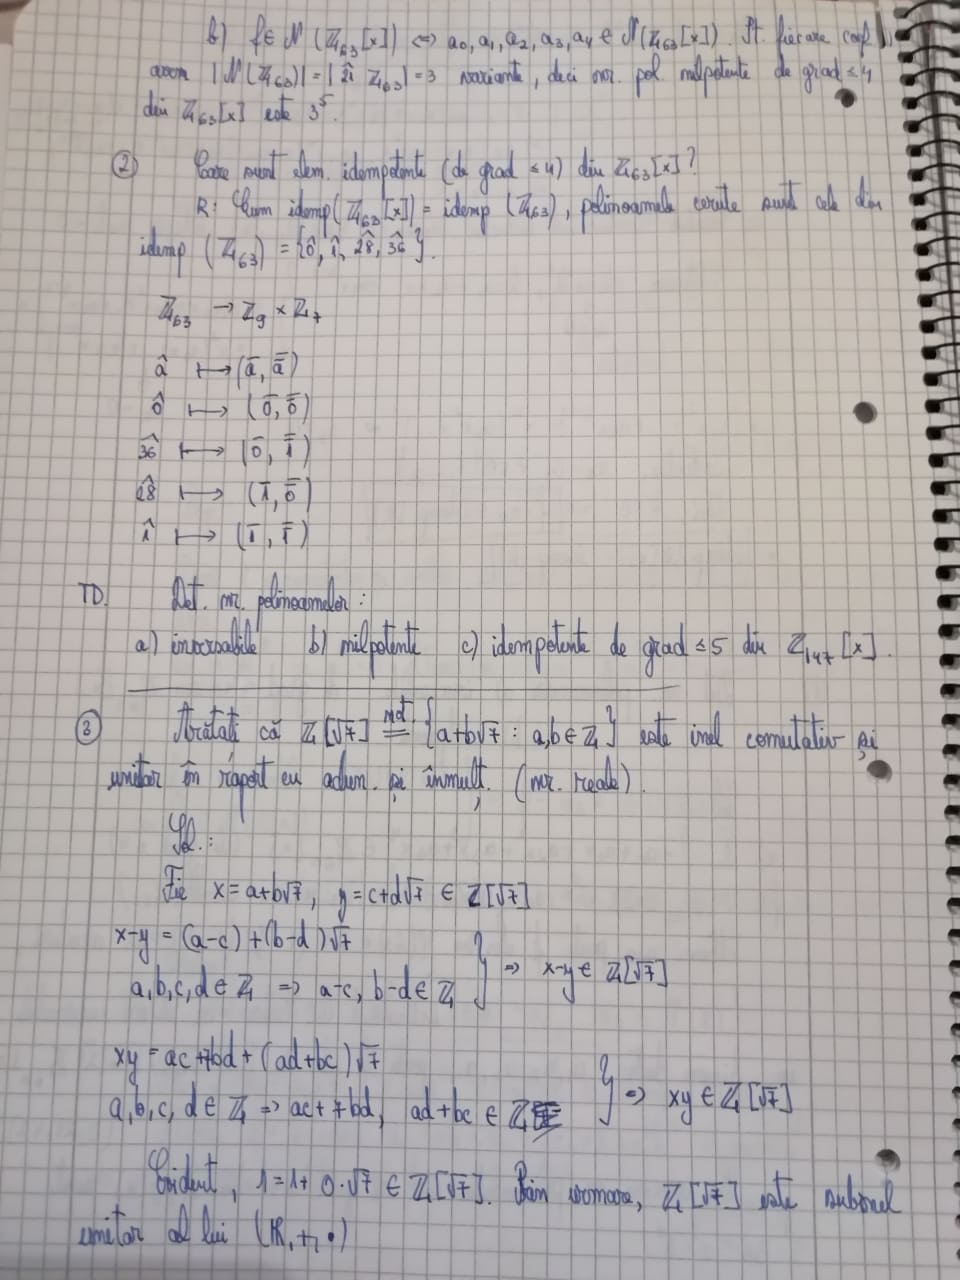 b) f ∈ N(ℤ₆₃[x]) ⇔ a₀, a₁, a₂, a₃, a₄ ∈ N(ℤ₆₃[x]). Pt. fiecare coef
avem |N(ℤ₆₃)| = |2̂1̂ ℤ₆₃| = 3 variante, deci nr. pol. nilpotente de grad ≤ 4
din ℤ₆₃[x] este 3⁵.
② Care sunt elem. idempotente (de grad ≤ 4) din ℤ₆₃[x]?
R: Cum idemp(ℤ₆₃[x]) = idemp(ℤ₆₃), polinoamele cerute sunt cele din
idemp (ℤ₆₃) = {0̂, 1̂, 2̂8̂, 3̂6̂}.
ℤ₆₃ → ℤ₉ × ℤ₇
â ↦ (a̅, a̿)
0̂ ↦ (0̅, 0̿)
3̂6̂ ↦ (0̅, 1̿)
2̂8̂ ↦ (1̅, 0̿)
1̂ ↦ (1̅, 1̅)
TD. Det. nr. polinoamelor:
a) inversabile b) nilpotente c) idempotente de grad ≤ 5 din ℤ₁₄₇[x].
③ Arătați că ℤ[√7] not. = {a+b√7 : a,b ∈ ℤ} este inel comutativ și
unitar în raport cu adun. și înmulț. (nr. reale).
Sol.:
Fie x = a+b√7, y = c+d√7 ∈ ℤ[√7]
x-y = (a-c) + (b-d)√7
a,b,c,d ∈ ℤ ⇒ a-c, b-d ∈ ℤ } ⇒ x-y ∈ ℤ[√7]
xy = ac+7bd + (ad+bc)√7
a,b,c,d ∈ ℤ ⇒ ac+7bd, ad+bc ∈ ℤ } ⇒ xy ∈ ℤ[√7]
Evident, 1 = 1+0·√7 ∈ ℤ[√7]. Prin urmare, ℤ[√7] este subinel
unitar al lui (ℝ, +, ·)